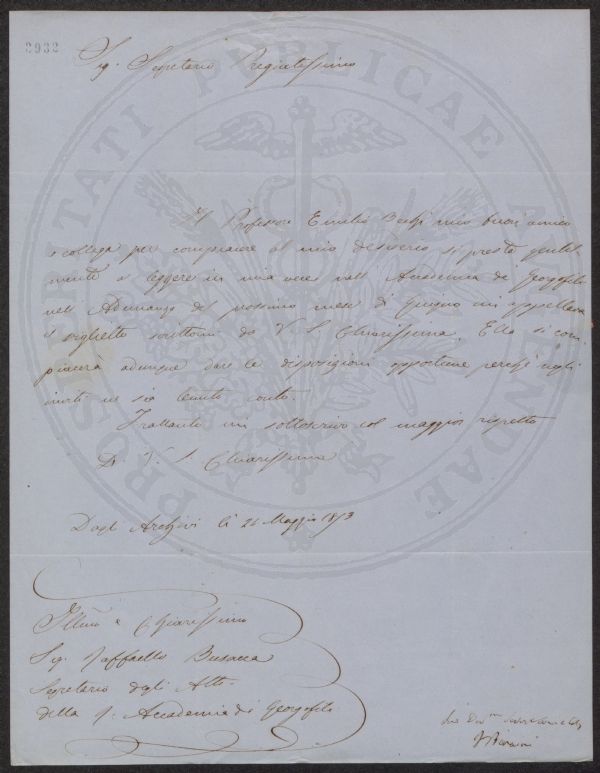 2932
Sig. Segretario Pregiatissimo
PROSPERITATI PUBLICAE AUGENDAE
Il Professore Emilio Bechi mio buon amico
e collega per compiacere al mio desiderio si presta gentil
mente a leggere in mia vece nell' Accademia de Georgofili
nell' Adunanza del prossimo mese di Giugno cui appellava
il biglietto scrittomi da V. S. Chiarissima. Ella si com
piacerà adunque dare le disposizioni opportune perchè negli
inviti ne sia tenuto conto.
Frattanto mi sottoscrivo col maggior rispetto
D. V. S. Chiarissima
Dagli Archivi li 26 Maggio 1853
Illmo e Chiarissimo
Sig. Raffaello Busacca
Segretario degli Atti
della I. Accademia de Georgofili